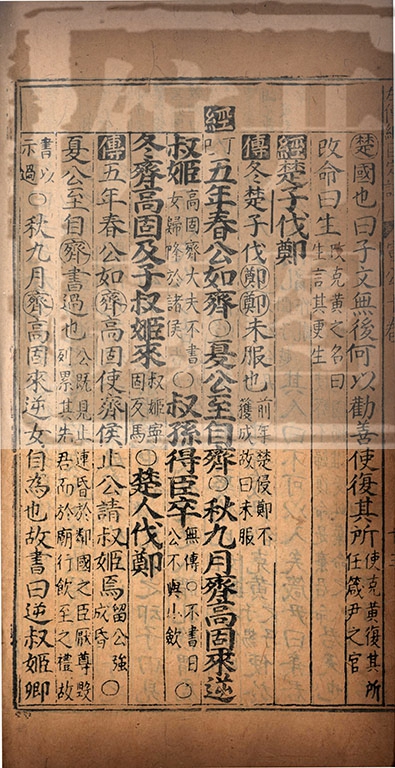 楚國也曰子文無後何以勸善使復其所使克黃復其所任箴尹之官
改命曰生改克黃之名曰生言其更生
經楚子伐鄭
傳冬楚子伐鄭鄭未服也前年楚侵鄭不獲成故曰未服
經丁巳五年春公如齊〇夏公至自齊〇秋九月齊高固來逆
叔姬高固齊大夫不書女歸降於諸侯〇叔孫得臣卒無傳〇不書日公不與小斂〇
冬齊高固及子叔姬來叔姬寧固反馬〇楚人伐鄭
傳五年春公如齊高固使齊侯止公請叔姬焉留公強成昏〇
夏公至自齊書過也公既見止連昏於鄰國之臣厭尊毀列累其先君而於廟行飲至之禮故
書以示過〇秋九月齊高固來逆女自為也故書曰逆叔姬卿